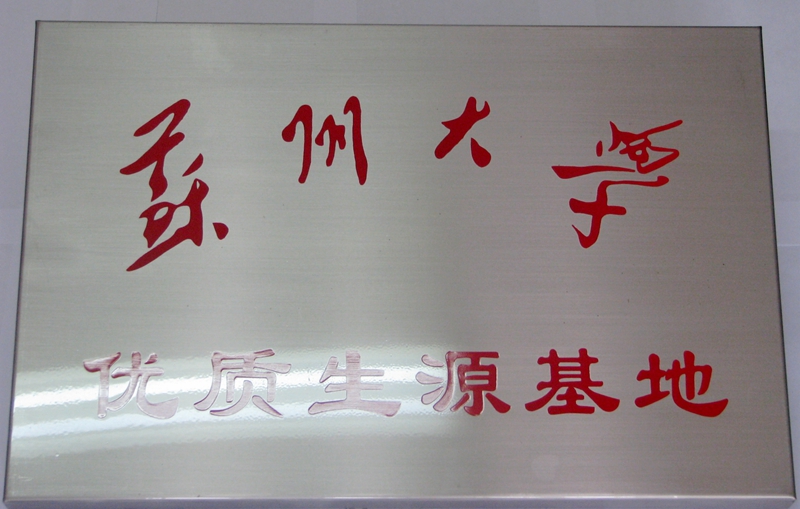 蘇州大學
优质生源基地